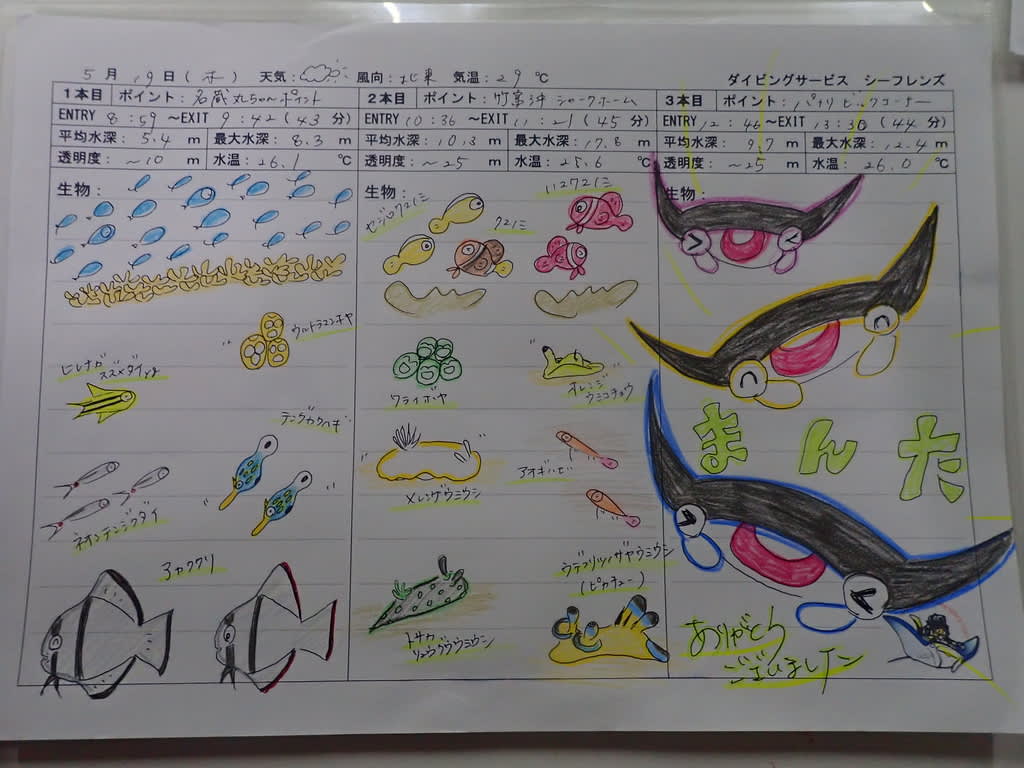 5月19日(木) 天気: 風向:北東 気温:29℃ ダイビングサービス シーフレンズ
1本目 ポイント:名蔵丸ちゃんポイント
ENTRY 8:59〜EXIT 9:42(43分)
平均水深:5.4m 最大水深:8.3m
透明度:〜10m 水温:26.1℃
生物:
ウルトラマンボヤ
ヒレナガスズメダイyg
テングカワハギ
ネオンテンジクダイ
アカククリ
2本目 ポイント:竹富沖シャークホーム
ENTRY 10:36〜EXIT 11:21(45分)
平均水深:10.3m 最大水深:17.8m
透明度:〜25m 水温:25.6℃
生物:
ハマクマノミ
セジロクマノミ
クマノミ
ワライボヤ
オレンジ
ウミコチョウ
メレンゲウミウシ
アオギハゼ
トサカ
リュウグウウミウシ
ウデフリツノザヤウミウシ
(ピカチュー)
3本目 ポイント:パナリビッグコーナー
ENTRY 12:46〜EXIT 13:30(44分)
平均水深:9.7m 最大水深:12.4m
透明度:〜25m 水温:26.0℃
生物:
まんた
ありがとう
ございました